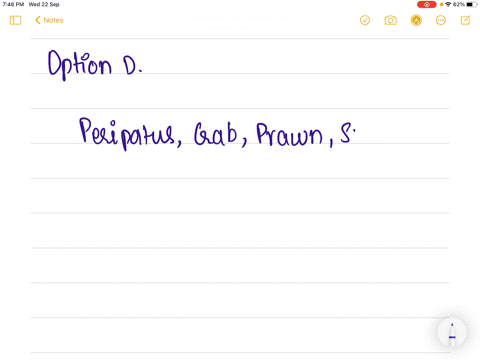 7:46 PM Wed 22 Sep 62%
Notes
Option D.
Peripatus, Crab, Prawn, S